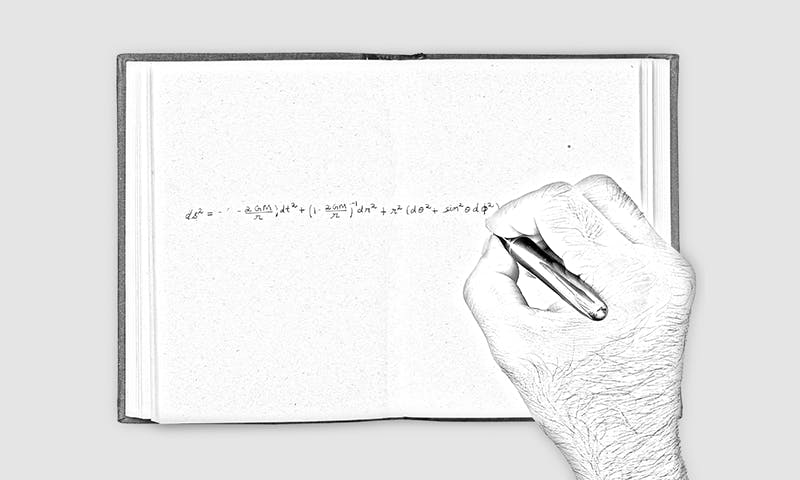 ds² = - - 2GM/r ) dt² + (1 - 2GM/r )⁻¹ dr² + r² (dθ² + sin²θ dϕ²)